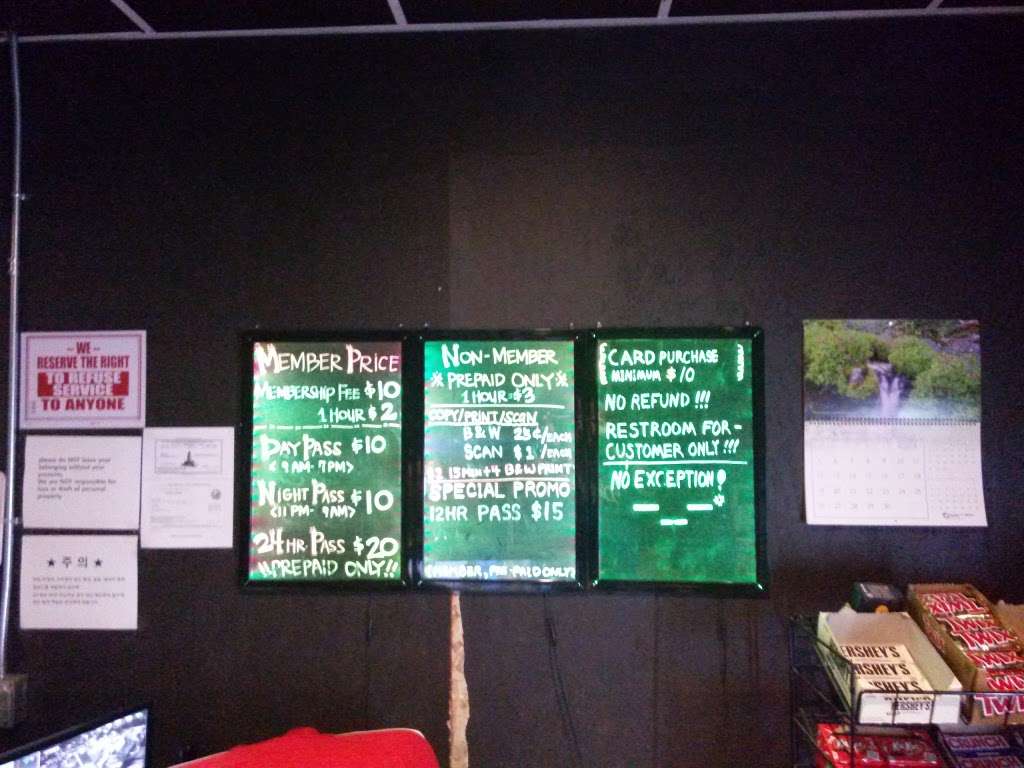 ~ WE ~
RESERVE THE RIGHT
TO REFUSE
SERVICE
TO ANYONE
please do NOT leave your
belonging without your
property.
We are NOT responsible for
loss or theft of personal
property
★ 주 의 ★
MEMBER PRICE
MEMBERSHIP FEE $10
1 HOUR $2
DAY PASS $10
< 9AM - 9PM>
NIGHT PASS $10
<11PM - 9AM>
24 HR. PASS $20
!!PREPAID ONLY!!
NON-MEMBER
※ PREPAID ONLY ※
1 HOUR $3
COPY/PRINT/SCAN
B&W 25¢/EACH
SCAN $1/EACH
15MIN + 4 B&W PRINT
SPECIAL PROMO
12HR PASS $15
(MEMBER, PRE-PAID ONLY)
CARD PURCHASE
MINIMUM $10
NO REFUND!!!
RESTROOM FOR -
CUSTOMER ONLY!!!
NO EXCEPTION!
TWIX
TWIX
TWIX
TWIX
HERSHEY'S
HERSHEY'S
HERSHEY'S
HERSHEY'S
KitKat
CRUNCH
CRUNCH